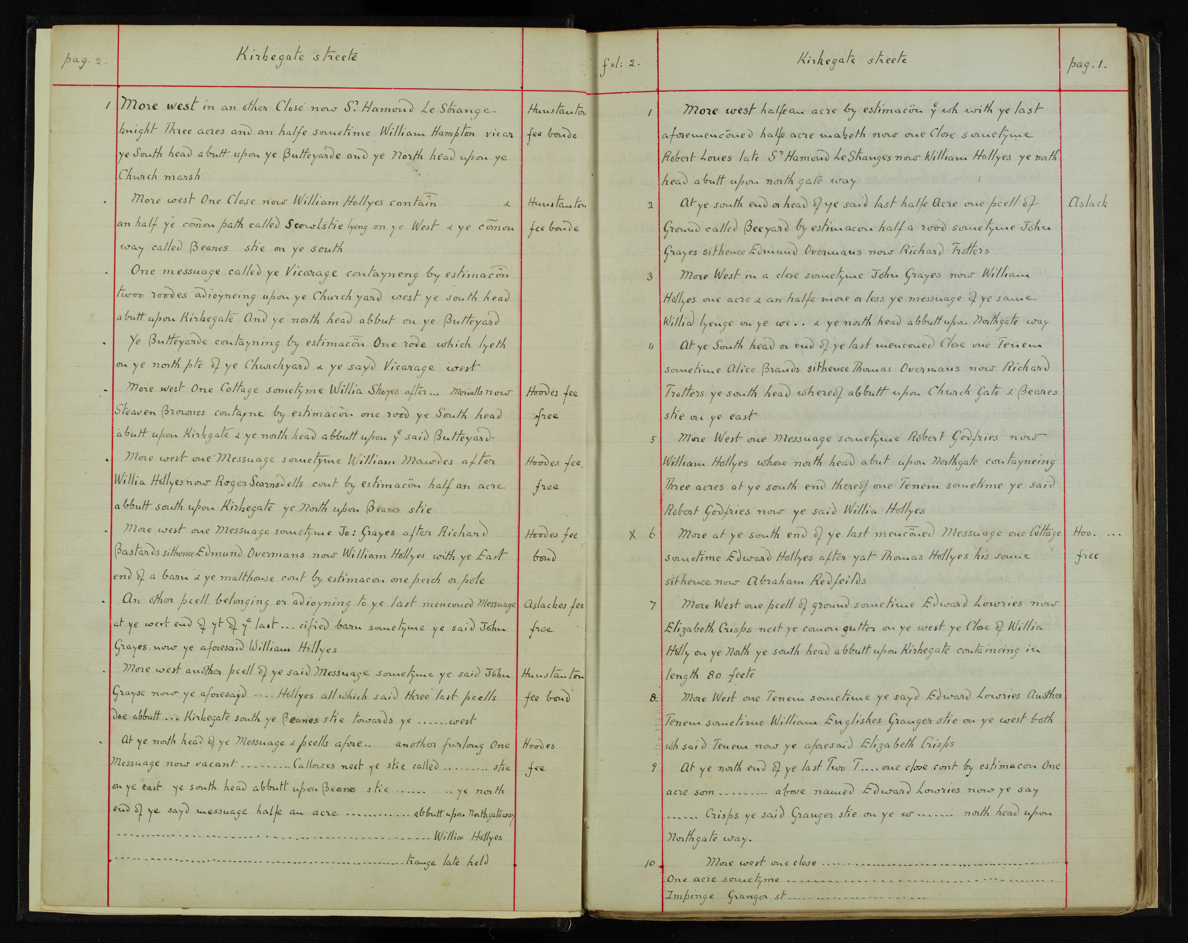 pag. 2.
Kirkegate streete
1 More west in an other Close now Sr. Hamond Le Strange Hunstanton
knight Three acres and an halfe sometime William Hampton vicar fee bonde
ye South head abutt upon ye Butteyarde and ye North head upon ye
Church marsh
More west One Close now William Hollyes contain & Hunstanton
an half ye comon path called Scowlstie lyeng on ye West & ye comon fee bonde
way called Beanes stie on ye south
One messuage called ye Vicarage contayneng by estimacon
twoo roodes adioyneing upon ye Church yard west ye south head
abutt upon Kirkegate And ye north head abbut on ye Butteyard
Ye Butteyarde contayning by estimacon One rode which lyeth
on ye north pte of ye Churchyard & ye sayd Vicarage west
More west One Cottage sometyme Willia Skeyes after... now Hoodes fee
Steaven Brownes contayne by estimacon one rood ye South head free
abutt upon Kirkgate & ye north head abbutt upon ye said Butteyard
More west one Messuage sometyme William Mawdes after Hoodes fee
Willia Hollyes now Roger Scarnsdells cont by estimacon half an acre free
abbutt south upon Kirkegate ye North upon Beanes stie
More west one Messuage sometyme Jo: Grayes after Richard Hoodes fee
Bastards sithence Edmund Overmans now William Hollyes with ye East bond
end of a barn & ye malthouse cont by estimacon one perch or pole
An other pcell belonging or adioyning to ye last menconed Messuage Aslackes fee
at ye west end of yt of ye last ... cified barn sometyme ye said John free
Grayes now ye aforesaid William Hollyes
More west another pcell of ye said Messuage sometyme ye said John Hunstanton
Grayse now ye aforesayd .... Hollyes all which said three last pcells fee bond
doe abbutt ... Kirkegate south ye Beanes stie towards ye ...... west
At ye north head of ye Messuage & pcells afore.. another furlong One Hoodes
Messuage now vacant ......... Callowes next ye stie called ......... stie fee
on ye east ye south head abbutt upon Beanes stie ...... .. ye north
end of ye sayd messuage halfe an acre ............ abbutt upon Northgateway
.................... Willia Hollyes
.................... trange late held
fol: 2.
Kirkegate streete
pag. 1.
1 More west halfe an acre by estimacon ye wh with ye last
aforemenconed halfe acre maketh now one Close sometyme
Robert Loues late Sr Hamond LeStranges now William Hollyes ye north
head abutt upon north gate way
2 At ye south end or head of ye said last halfe Acre one pcell of Aslack
Ground called Beeyard by estimacon half a rood sometyme John
Grayes sithence Edmund Overmans now Richard Trotters
3 More West in a close sometyme John Grayes now William
Hollyes one acre & an halfe more or less ye messuage of ye same
Willia lyenge on ye we.. & ye north head abbutt upon Northgate way
4 At ye South head or end of ye last menconed Close one Tenem
sometime Alice Brands sithence Thomas Overmans now Richard
Trotters ye south head whereof abbutt upon Church Gate & Beanes
stie on ye east
5 More West one Messuage sometyme Robert Godfries now
William Hollyes whose north head abut upon Northgate contayneing
Three acres at ye south end thereof one Tenem sometime ye said
Robert Godfries now ye said Willia Hollyes
X 6 More at ye south end of ye last menconed Messuage one Cottage Hoo. ...
sometime Edward Hollyes after yat Thomas Hollyes his sonne free
sithence now Abraham Redfeilds
7 More West one pcell of ground sometime Edward Lowries now
Elizabeth Crisps next ye comon gutter on ye west ye Close of Willia
Holly on ye North ye south head abbutt upon Kirkegate containeing in
length 80 feete
8 More West one Tenem sometime ye sayd Edward Lowries Another
Tenem sometime William Englishes Granger stie on ye west both
wh said Tenem now ye aforesaid Elizabeth Crisps
9 At ye north end of ye last Two T.... one close cont by estimacon One
acre som ......... above named Edward Lowries now ye say
...... Crisps ye said Granger stie on ye w ....... north head upon
Northgate way.
10 More west one close ....................
One acre sometyme ....................
Impinge Granger st ....................